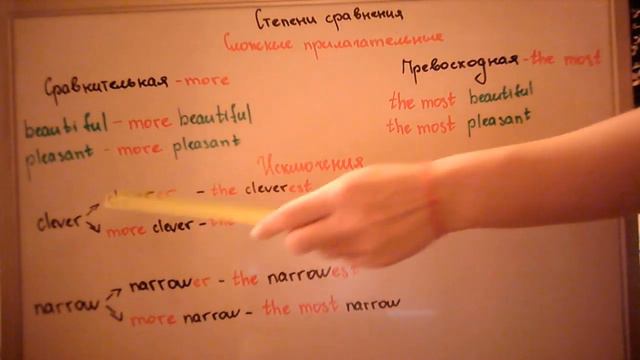 Степени сравнения
Сложные прилагательные
Сравнительная - more
Превосходная - the most
beautiful - more beautiful
the most beautiful
pleasant - more pleasant
the most pleasant
Исключения
clever
- the cleverest
more clever - the
narrow
narrower - the narrowest
more narrow - the most narrow